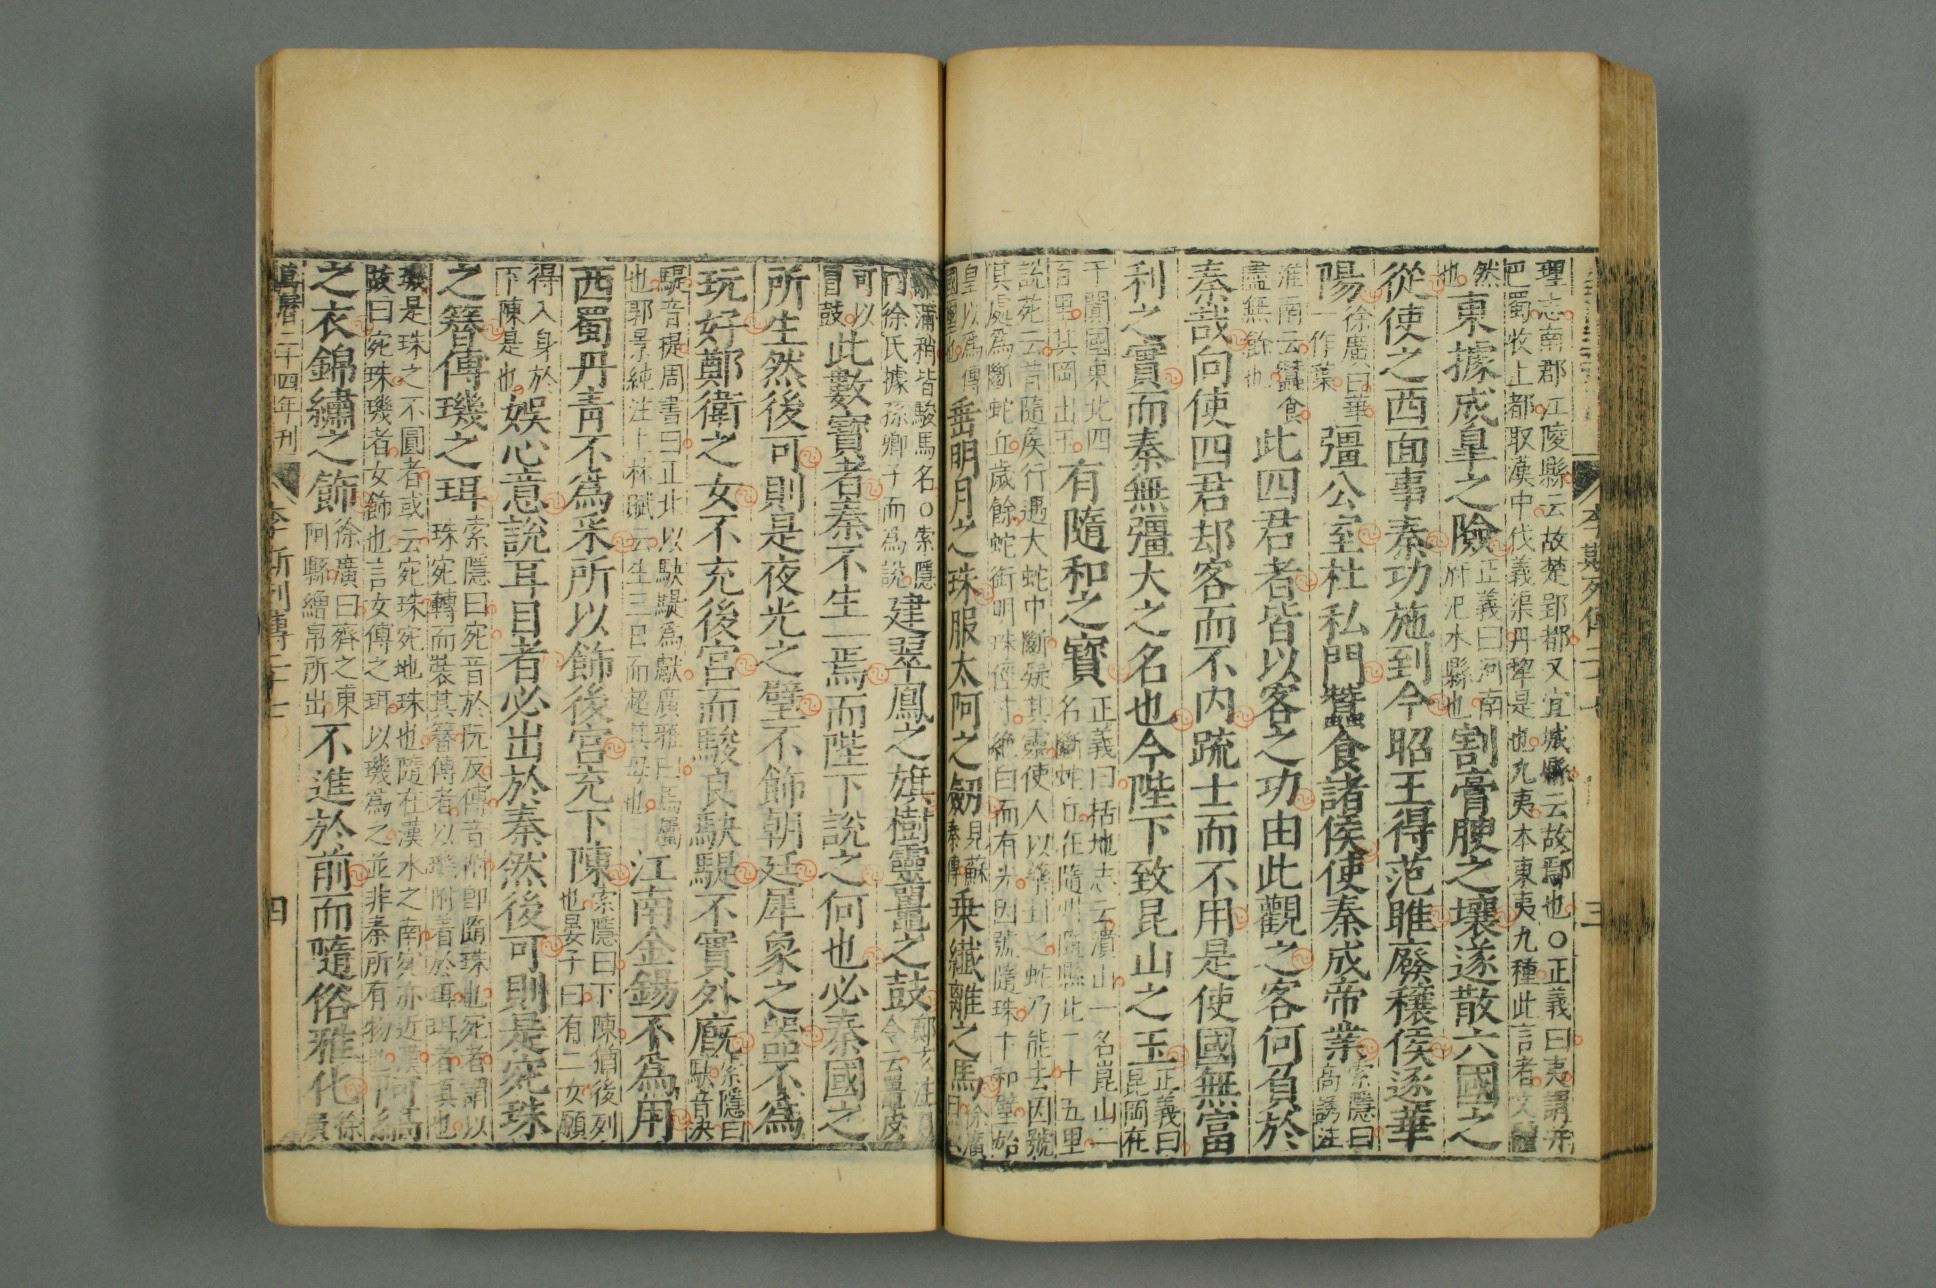 理志南郡江陵縣云故楚郢都又宜城縣云故鄢也○正義曰夷謂并
巴蜀收上郡取漢中伐義渠丹犂是也九夷本東夷九種此言者文
然
也
東據成臯之險
正義曰河南
府汜水縣也
割膏腴之壤遂散六國之
從使之西面事秦功施到今昭王得范雎廢穰侯逐華
陽
徐廣曰華
一作葉
彊公室杜私門蠶食諸侯使秦成帝業
索隱曰
高誘注
淮南云蠶食
盡無餘也
此四君者皆以客之功由此觀之客何負於
秦哉向使四君却客而不内疏士而不用是使國無富
利之實而秦無彊大之名也今陛下致昆山之玉
正義曰
昆岡在
于闐國東北四
百里其岡出玉
有隨和之寶
正義曰括地志云濆山一名崑山一
名斷蛇丘在隨州隨縣北二十五里
說苑云昔隨侯行遇大蛇中斷疑其靈使人以藥封之蛇乃能去因號
其處為斷蛇丘歲餘蛇銜明珠徑寸絶白而有光因號隨珠卞和璧始
皇以為傳
國璽也
垂明月之珠服太阿之劒
見蘇
秦傳
乗纖離之馬
徐廣
曰
蒲稍皆駿馬名○索隱
曰徐氏據孫卿子而為說
建翠鳳之旗樹靈鼉之鼓
鄭玄注
令云鼉皮
可以
冒鼓
此數寶者秦不生一焉而陛下說之何也必秦國之
所生然後可則是夜光之璧不飾朝廷犀象之器不為
玩好鄭衛之女不充後宮而駿良駃騠不實外廐
索隱曰
駃音決
騠音提周書曰正北以駃騠為獻廣雅曰馬屬
也郭景純注上林賦云生三日而超其母也
江南金錫不為用
西蜀丹青不為釆所以飾後宮充下陳
索隱曰下陳猶後列
也晏子曰有二女願
得入身於
下陳是也
娛心意說耳目者必出於秦然後可則是宛珠
之簪傅璣之珥
索隱曰宛音於阮反傅音附卽隋珠也宛者謂以
珠宛轉而裝其簪傅者以璣附着於珥珥者瑱也
璣是珠之不圓者或云宛珠宛地珠也隨在漢水之南宛亦近漢
故曰宛珠璣者女飾也言女傅之珥以璣為之並非秦所有物也
阿縞
之衣錦繡之飾
徐廣曰齊之東
阿縣繒帛所出
不進於前而隨俗雅化
徐
廣
萬曆二十四年刊
李斯列傳二十七
四
李斯列傳二十七
三